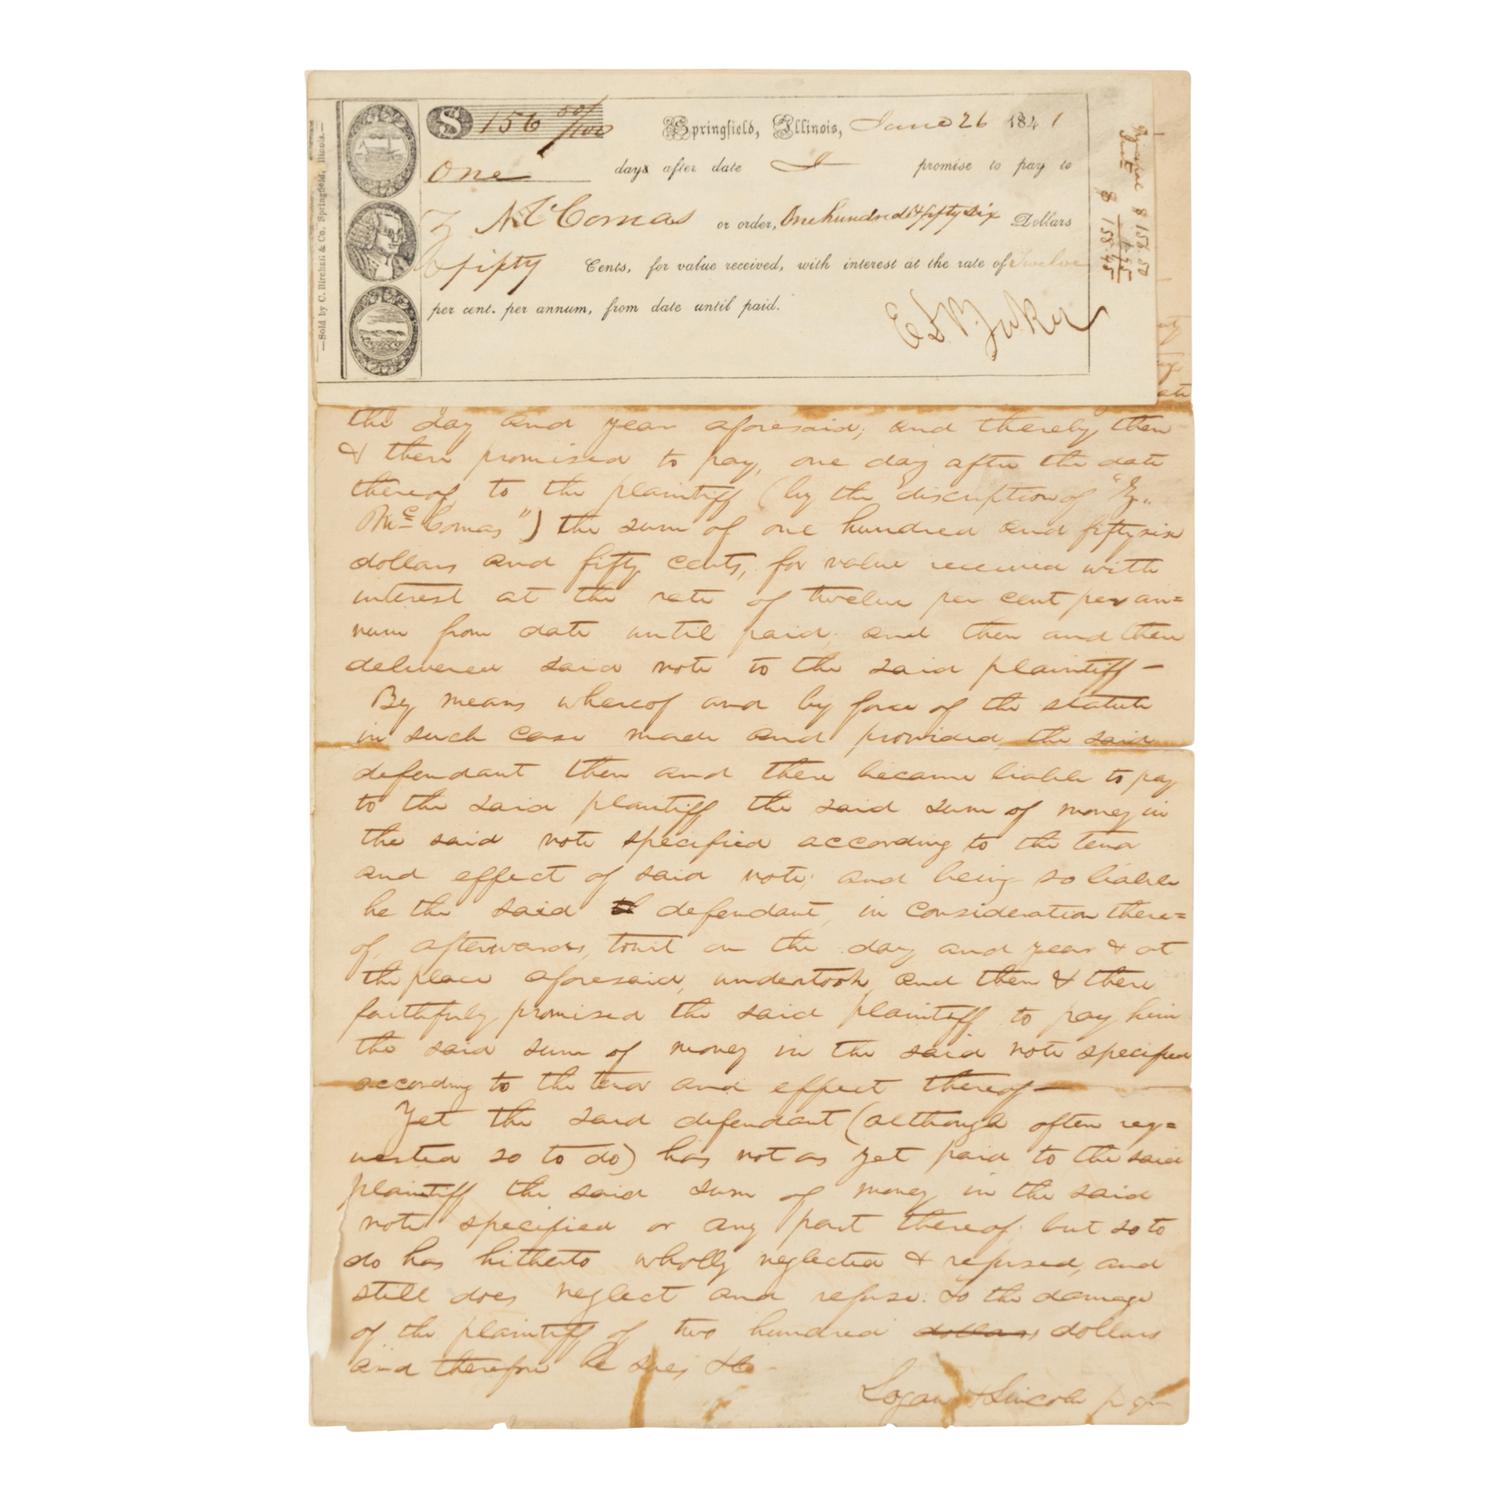 $ 156 50/100 Springfield, Illinois, June 26 1841
One days after date I promise to pay to
Z McComas or order, One hundred & fifty six Dollars
& fifty Cents, for value received, with interest at the rate of Twelve
per cent. per annum, from date until paid.
E D Baker
—Sold by C. Birchall & Co. Springfield, Illinois.—
$ 156.50
$ 158.45
the day and year aforesaid; and thereby then
& there promised to pay, one day after the date
thereof, to the plaintiff (by the discription of "Z.
Mc Comas") the sum of one hundred and fifty six
dollars and fifty cents, for value received with
interest at the rate of twelve per cent per an=
num from date until paid; and then and there
delivered said note to the said plaintiff—
By means whereof and by force of the statute
in such case made and provided the said
defendant then and there became liable to pay
to the said plaintiff the said sum of money in
the said note specified according to the tenor
and effect of said note; and being so liable
he the said defendant, in consideration there=
of, afterwards, towit on the day and year & at
the place aforesaid, undertook, and then & there
faithfuly promised the said plaintiff to pay him
the said sum of money in the said note specified
according to the tenor and effect thereof—
Yet the said defendant (although often req=
uested so to do) has not as yet paid to the said
plaintiff the said sum of money in the said
note specified or any part thereof; but so to
do has hitherto wholly neglected & refused, and
still does neglect and refuse: To the damage
of the plaintiff of two hundred dollars dollars
and therefore he sues &c
Logan & Lincoln p.q.